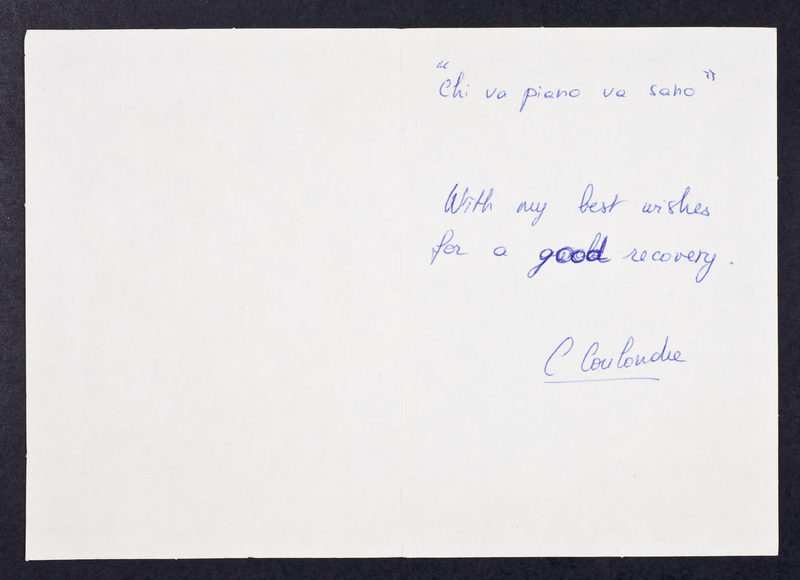 "Chi va piano va sano"
With my best wishes
for a good recovery.
C Coulondre